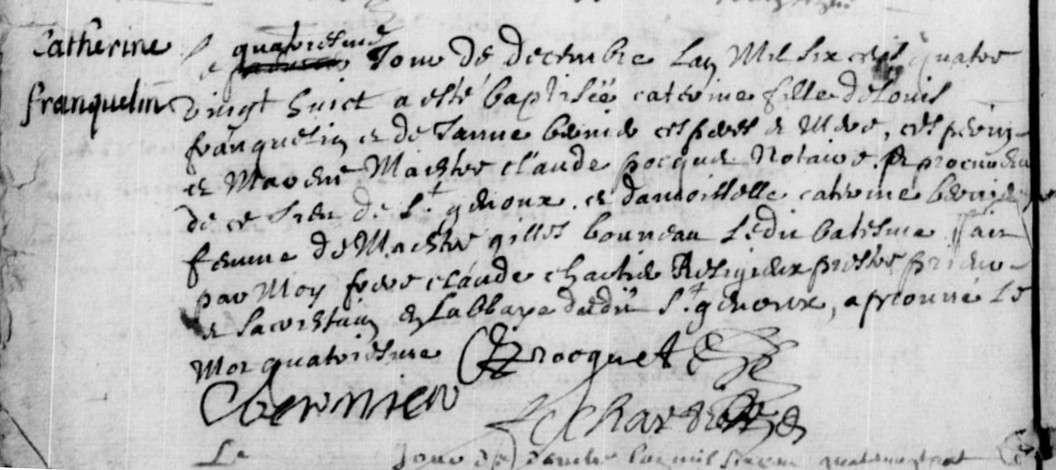 Catherine
franquelin
Le quatoriesme
Jour de decembre Lan Mil six cens quatre
vingt huict a esté baptisée caterine fille de Louis
franquelin et de Janne bernier ces peres et Mere, ces perin
et Marene Maistre claude pocquet Notaire et procureur
de ce lieu de St genoux et damoisselle caterine bernier
femme de Maistre gilles bonneau Ledit batesme fait
par Moy frere claude Religieux prestre prieur
et sacristain en Labbaye dudit St genoux, a prononcé Le
Mot quatoriesme
CBernier
Pocquet
Le Jour de